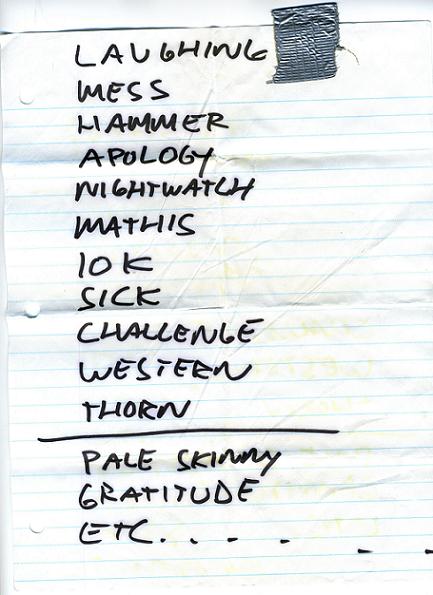 LAUGHING
MESS
HAMMER
APOLOGY
NIGHTWATCH
MATHIS
10K
SICK
CHALLENGE
WESTERN
THORN
PALE SKINNY
GRATITUDE
ETC. . . . . .